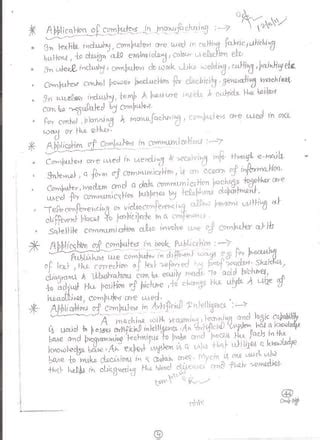 * Application of Computers in manufacturing :→
• In textile industry, computers are used in cutting fabric, stitching
buttons, to design all embroidery, colour selection etc.
• In steel industry, computers do work like welding, cutting, painting etc
• Computers control power production for electricity, generating machines.
• In nuclear industry, temp & pressure inside & outside the boiler
can be regulated by computers.
• For control, planning & manufacturing, computers are used in one
way or the other.
* Application of Computers in communications :→
• Computers are used in sending & receiving info through e-mails
• Internet, a form of communication, is an ocean of information.
• Computer, modem and a data communication package together are
used for communication purposes by telephone department.
• Teleconferencing or videoconferencing allows persons sitting at
different places to participate in a conference.
• Satellite communication also involve use of computers at its
* Application of computers in book Publication :→
Publishers use computers in different ways eg. for processing
of text, the correction of text referred by proof readers. Sketches,
diagrams & illustrations can be easily made. To add pictures,
to adjust the position of picture, to change the style & size of
headlines, computers are used.
* Application of Computers in Artificial Intelligence :→
A machine with reasoning, learning and logic capability
is said to possess artificial intelligence. An Artificial system has a knowledge
base and programming techniques to make and process the facts in the
knowledge base. An expert system is a that utilizes a knowledge
base to make decisions in a certain area. Mycin is one such
that helps in diagnosing the blood diseases and their remedies.